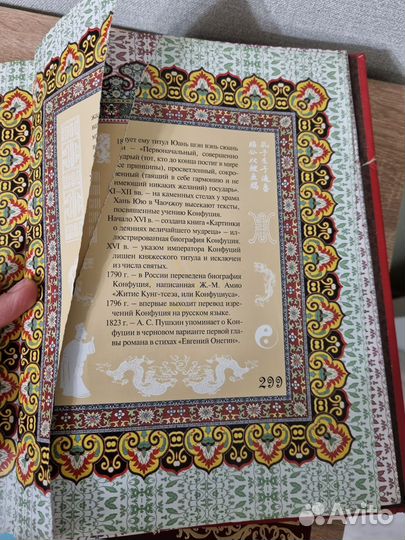 ует ему титул Юань шэн вэнь сюань
— «Первоначальный, совершенно
удрый (тот, кто до конца постиг в мире
ринципы), просветленный, сокро-
енный (таящий в себе гармонию и не
имеющий никаких желаний) государь».
XI–XII вв. — на каменных стелах у храма
Хань Юю в Чаочжоу высекают тексты,
посвященные учению Конфуция.
Начало XVI в. — создана книга «Картинки
о деяниях величайшего мудреца» — ил-
люстрированная биография Конфуция.
XVI в. — указом императора Конфуций
лишен княжеского титула и исключен
из числа святых.
1790 г. — в России переведена биография
Конфуция, написанная Ж.-М. Амио
«Житие Кунг-тсеза, или Конфуциуса».
1796 г. — впервые выходит перевод изре-
чений Конфуция на русском языке.
1823 г. — А. С. Пушкин упоминает о Кон-
фуции в черновом варианте первой гла-
вы романа в стихах «Евгений Онегин».
299
Avito